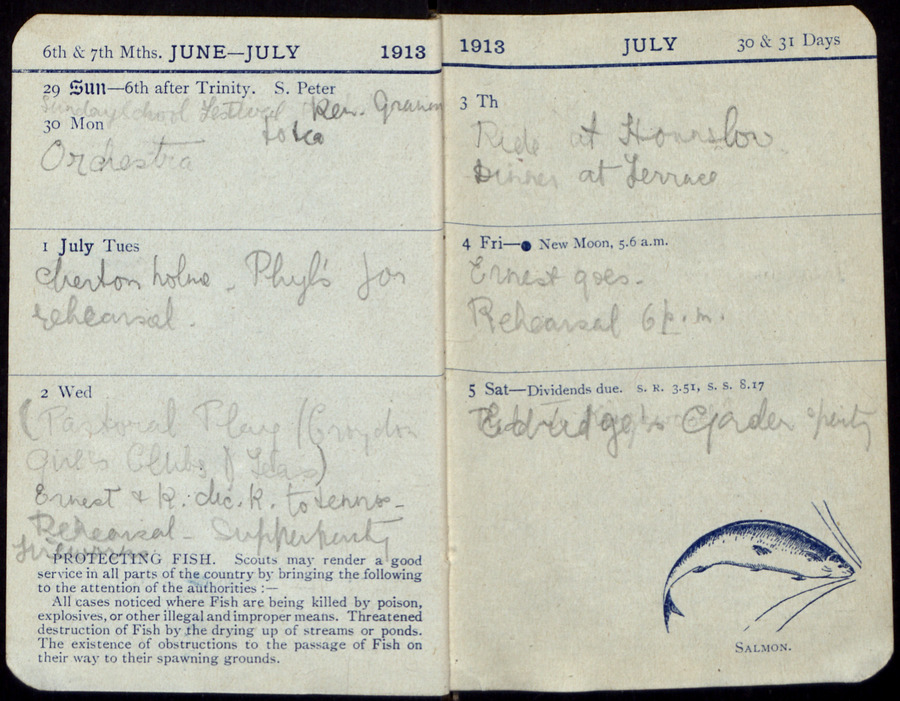 6th & 7th Mths. JUNE—JULY 1913
29 Sun—6th after Trinity. S. Peter
Sunday School Festival Rev. Graham
30 Mon to tea
Orchestra
1 July Tues
Cherton holme - Phyl's for
rehearsal.
2 Wed
(Pastoral Play (Croydon
Girl's Clubs) Teas)
Ernest & K. to tennis -
Rehearsal - Supper party
Fireworks
PROTECTING FISH. Scouts may render a good
service in all parts of the country by bringing the following
to the attention of the authorities :—
All cases noticed where Fish are being killed by poison,
explosives, or other illegal and improper means. Threatened
destruction of Fish by the drying up of streams or ponds.
The existence of obstructions to the passage of Fish on
their way to their spawning grounds.
1913 JULY 30 & 31 Days
3 Th
Ride at Hounslow
Dinner at Terrace
4 Fri—● New Moon, 5.6 a.m.
Ernest goes.
Rehearsal 6 p.m.
5 Sat—Dividends due. S. R. 3.51, S. S. 8.17
Eldridge's Garden party
SALMON.